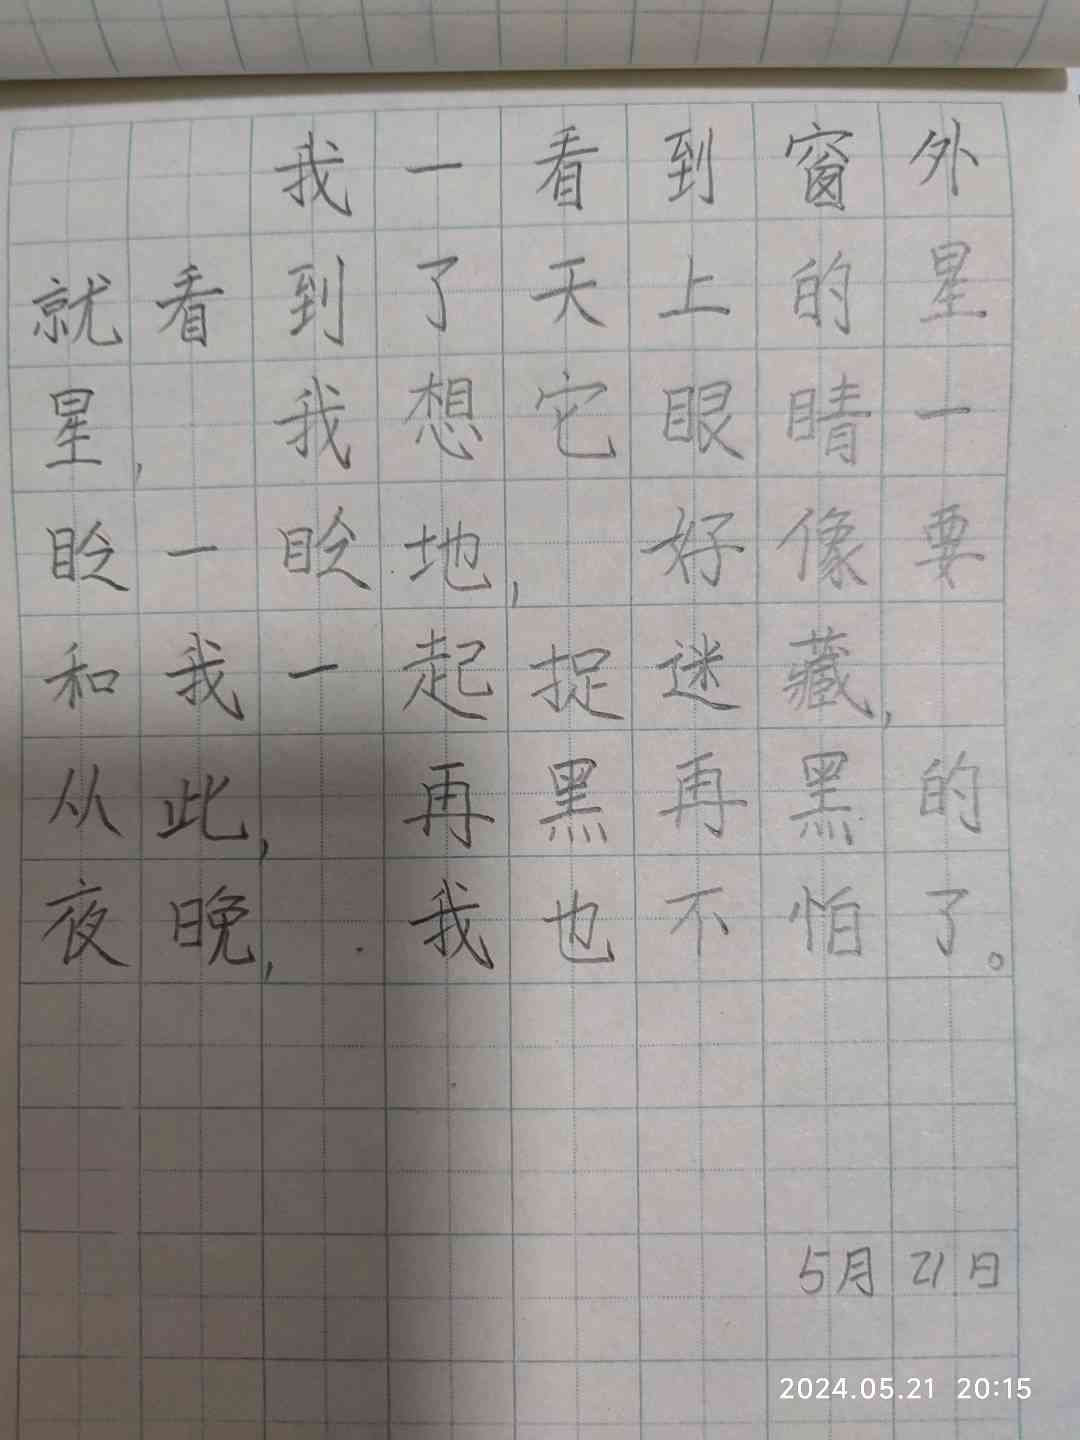 我一看到窗外
就看到了天上的星
星，我想它眼睛一
眨一眨地，好像要
和我一起捉迷藏，
从此，再黑再黑的
夜晚，我也不怕了。
5月21日
2024.05.21 20:15